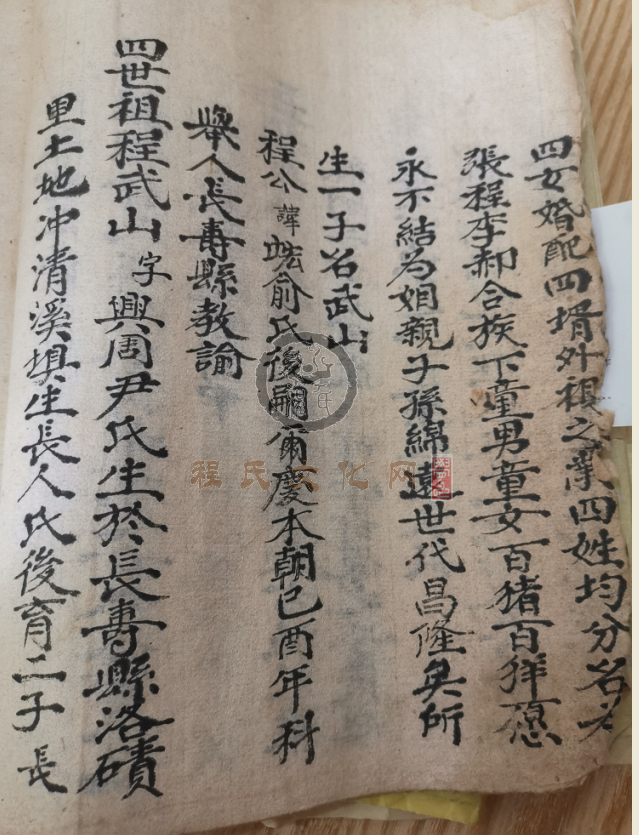 四女婚配四壻外祖之業四姓均分名
張程李郝合族下童男童女百猪百羊愿
永不結為姻親子孫綿遠世代昌隆矣所
生一子名武山
程公諱俞氏後嗣爾慶本朝己酉年科
舉人長壽縣教諭
四世祖程武山字興周尹氏生於長壽縣洛磧
里土地冲清溪塡生長人氏後育二子長
程氏文化网